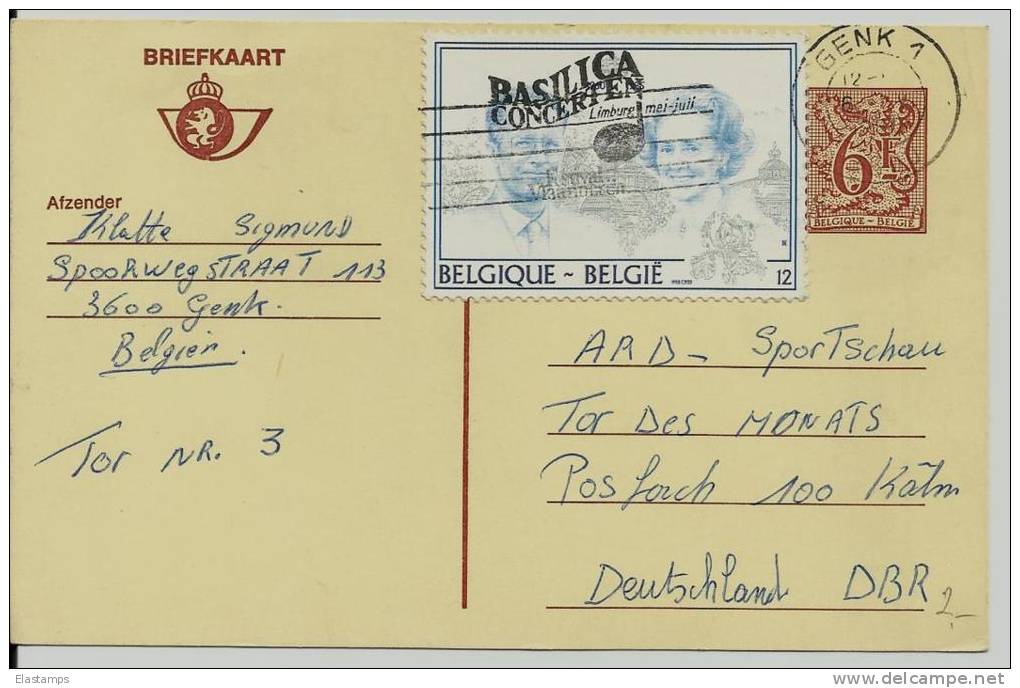 BRIEFKAART
Afzender
Klatte Sigmund
SpoorwegSTRAAT 113
3600 Genk.
Belgien.
Tor NR. 3
BASILICA
CONCERTEN
Limburg mei-juli
BELGIQUE ~ BELGIË
12
GENK 1
12-
6
6F
BELGIQUE - BELGIË
ARD - SporTschau
Tor Des MONATS
Posfach 100 Kölm
Deutschland DBR
2,-
Elastamps
www.delcampe.net